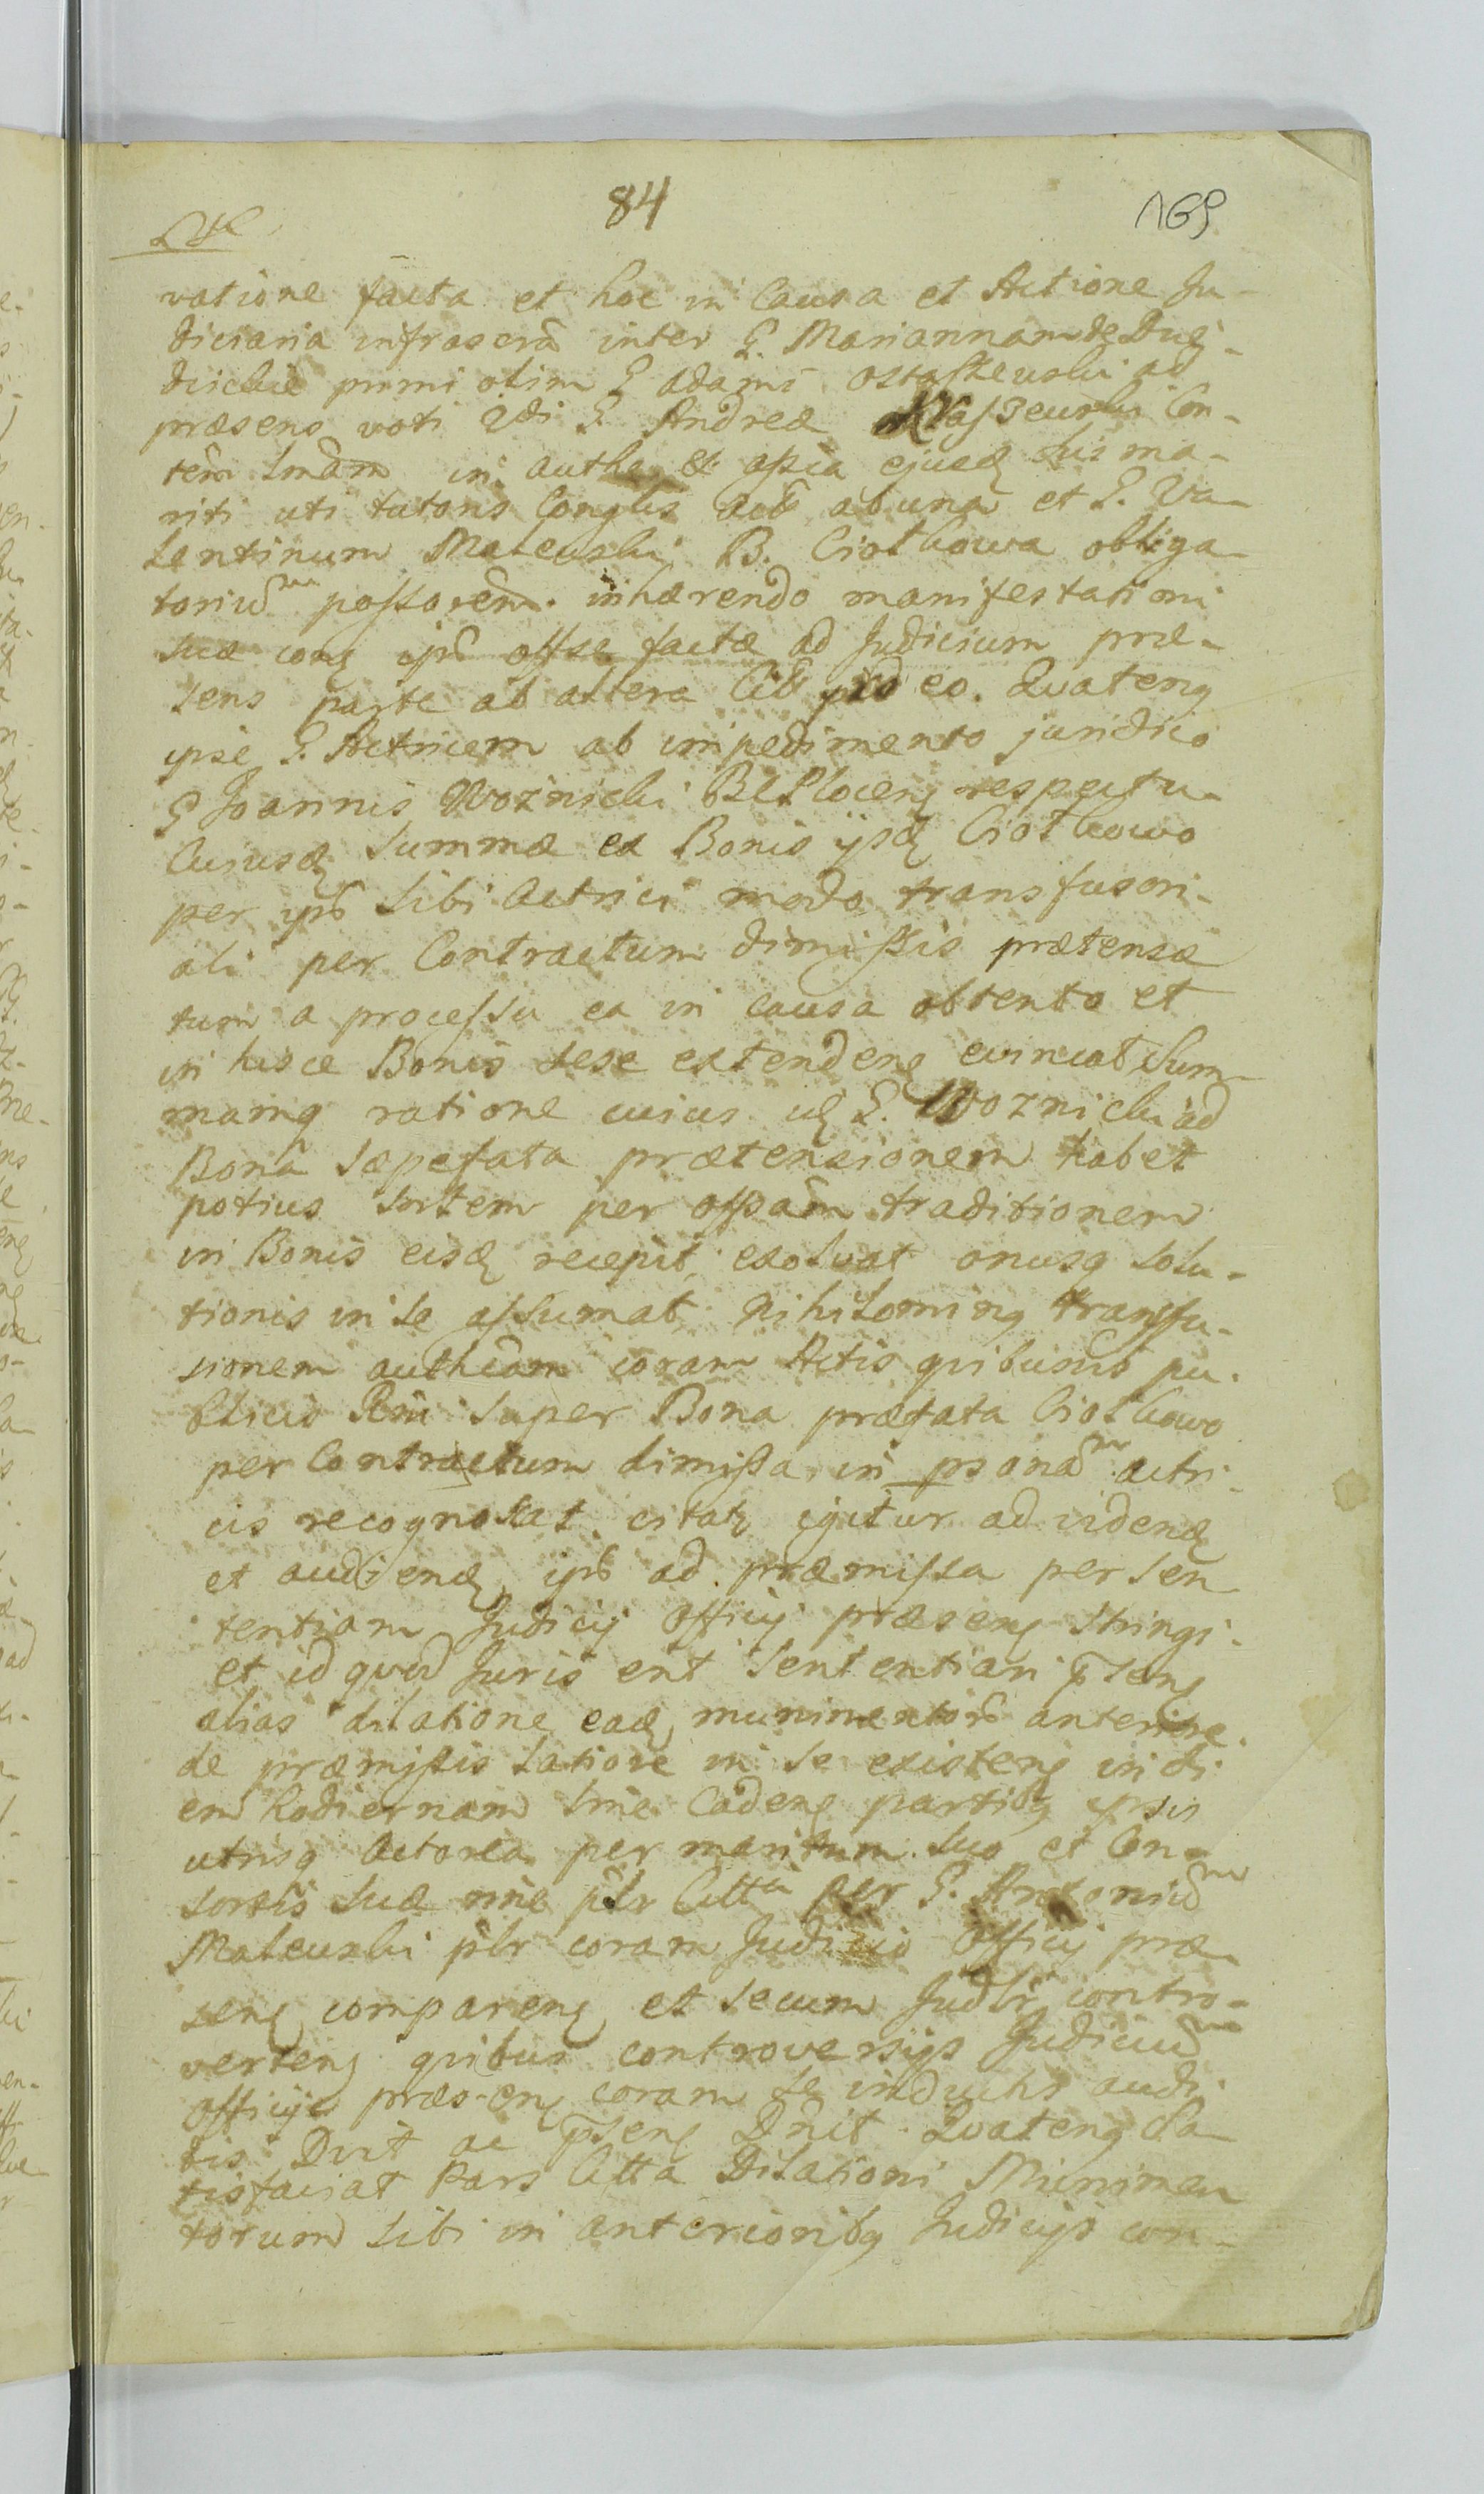 84
169
vatione facta et hoc in Causa et Actione Ju-
diciaria infrascrã inter G. Mariannam de
primi olim G Adami Ostaszewski ad
præsens voti 2di G. Andreæ Kraszewski Con-
tẽm in autha et assẽa ejusd sui ma-
riti uti tutoris Conglis Act ab una et G. Va-
lentinum Mateuski B. Ciołkowa obliga-
toriũm possorem. inhærendo manifestationi
suæ cong ipũ offse factæ ad Judicium præ-
sens parte ab altera Citt eo. Quateng
ipse G. Actricem ab impedimento juridico
G Joannis Woznicki BCPlocens respectu
Cujusd Summæ ex Bonis ijsd Ciołkowo
per ipũ sibi Actrici modo transfusori-
ali per Contractum dimissis prætensæ
tum a processu ea in causa obtento et
in hisce Bonis sese extendens evincat sum-
mamq ratione cuius id G. Woznicki ad
Bona sæpefata prætensionem habet
potius sortem per offsam traditionem
in Bonis eisd recepit, exolvat onusq solu-
tionis in se assumat, Nihiloming transfu-
sionem autheam coram Actis quibusvis pu-
blicis Rni super Bona præfata Ciołkowo
per Contractum dimissa, in psonãm actri-
cis recognoscat. citatq igitur ad vidend
et audiend, ipũ ad præmissa per Sen
tentiam Judicij Officij præsens stringi.
et id quod Juris erit Sententiari p̃sens
alias dilatione ead munimentorũ anterire
de præmissis latiore in se existens in di
em hodiernam sme Cadens partibq ipsis
utrisq Actorea per maritum suo et Con-
sortis suæ nnie plr Citta per G. Antoniũm
Mateuski plr coram Judicio Officij præ
sens comparens et secum Judlr contro-
vertens quibus controversijs Judiciũm
Officij præsens coram se inductis audi
tis Dvit ac p̃sens Dnit Quateng Sa
tisfaciat Pars Citta Dilationi Munimen
torum sibi in anterioribq Judicijs con-